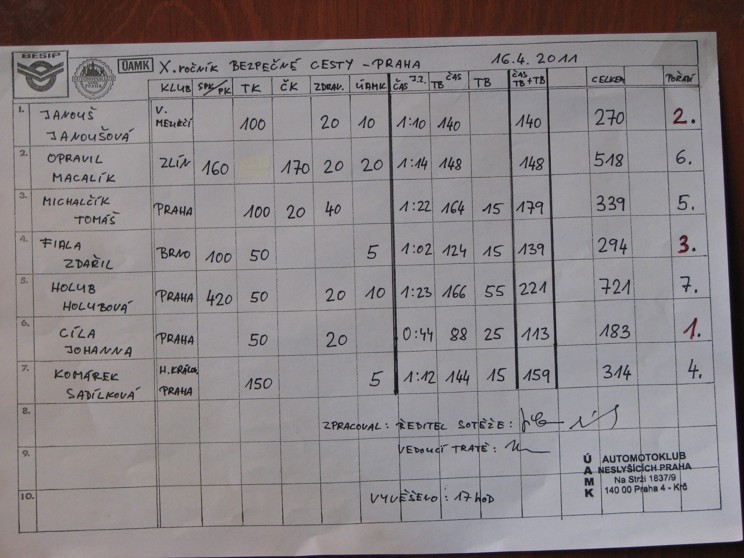 BESIP ÚAMK X. ročník BEZPEČNÉ CESTY - PRAHA 16.4.2011
KLUB SPK/PK TK ČK ZDRAV. ÚAMK ČAS J.Z. ČAS TB TB ČAS TB+TB CELKEM POŘADÍ
1. JANOUŠ JANOUŠOVÁ V. MEZIŘÍČÍ 100 20 10 1:10 140 140 270 2.
2. OPRAVIL MACALÍK ZLÍN 160 170 20 20 1:14 148 148 518 6.
3. MICHALČÍK TOMÁŠ PRAHA 100 20 40 1:22 164 15 179 339 5.
4. FIALA ZDAŘIL BRNO 100 50 5 1:02 124 15 139 294 3.
5. HOLUB HOLUBOVÁ PRAHA 420 50 20 10 1:23 166 55 221 721 7.
6. CÍLA JOHANNA PRAHA 50 20 0:44 88 25 113 183 1.
7. KOMÁREK SADÍLKOVÁ H. KRÁLO. PRAHA 150 5 1:12 144 15 159 314 4.
8. ZPRACOVAL: ŘEDITEL SOTĚŽE:
9. VEDOUCÍ TRATĚ:
10. VYVĚŠELO: 17 HOD
ÚAMK
AUTOMOTOKLUB
NESLYŠÍCÍCH PRAHA
Na Strži 1837/9
140 00 Praha 4 - Krč